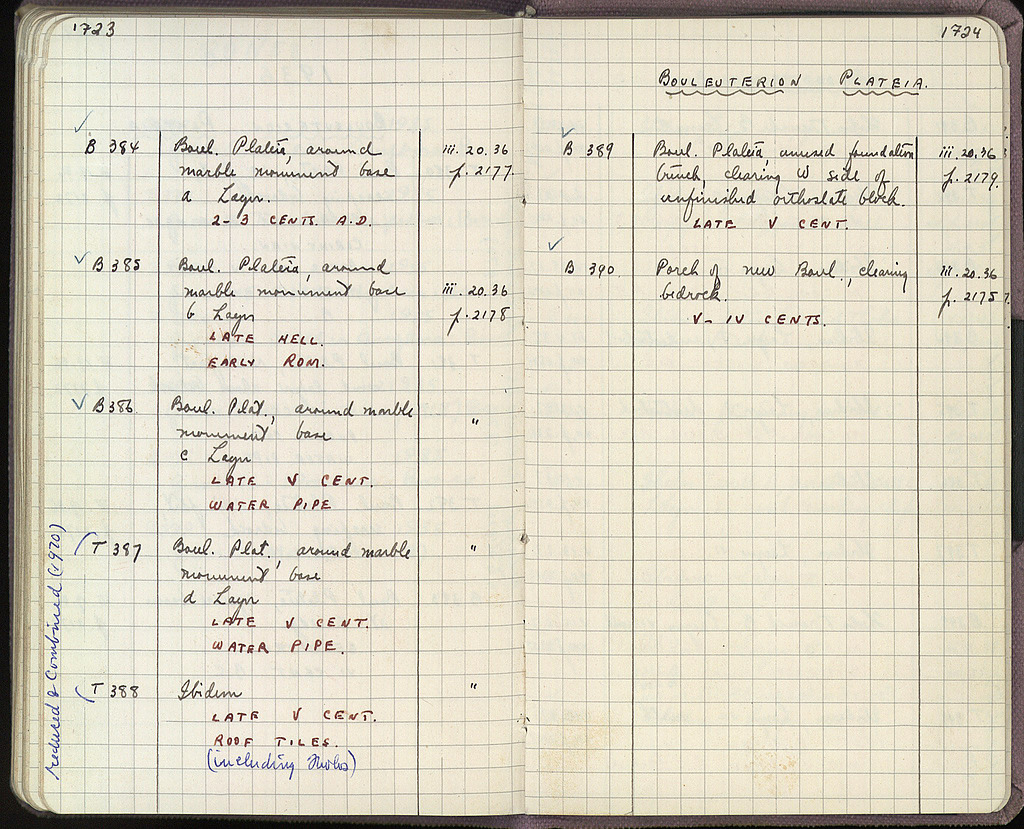 1723
B 384 Boul. Plateia, around iii.20.36
marble monument base p. 2177.
a Layer.
2-3 CENTS. A.D.
B 385 Boul. Plateia, around
marble monument base iii.20.36
b Layer p. 2178
LATE HELL.
EARLY ROM.
B 386. Boul. Plat., around marble "
monument base
c Layer
LATE V CENT.
WATER PIPE
T 387 Boul. Plat., around marble "
monument base
d Layer
LATE V CENT.
WATER PIPE.
T 388 Ibidem "
LATE V CENT.
ROOF TILES.
(including
reduced & combined (v 1970)
1724
BOULEUTERION PLATEIA.
B 389 Boul. Plateia, unused foundation iii.20.36
trench, clearing W side of p. 2179.
unfinished orthostate block.
LATE V CENT.
B 390. Porch of new Boul., clearing iii.20.36
bedrock. p. 2175
V-IV CENTS.